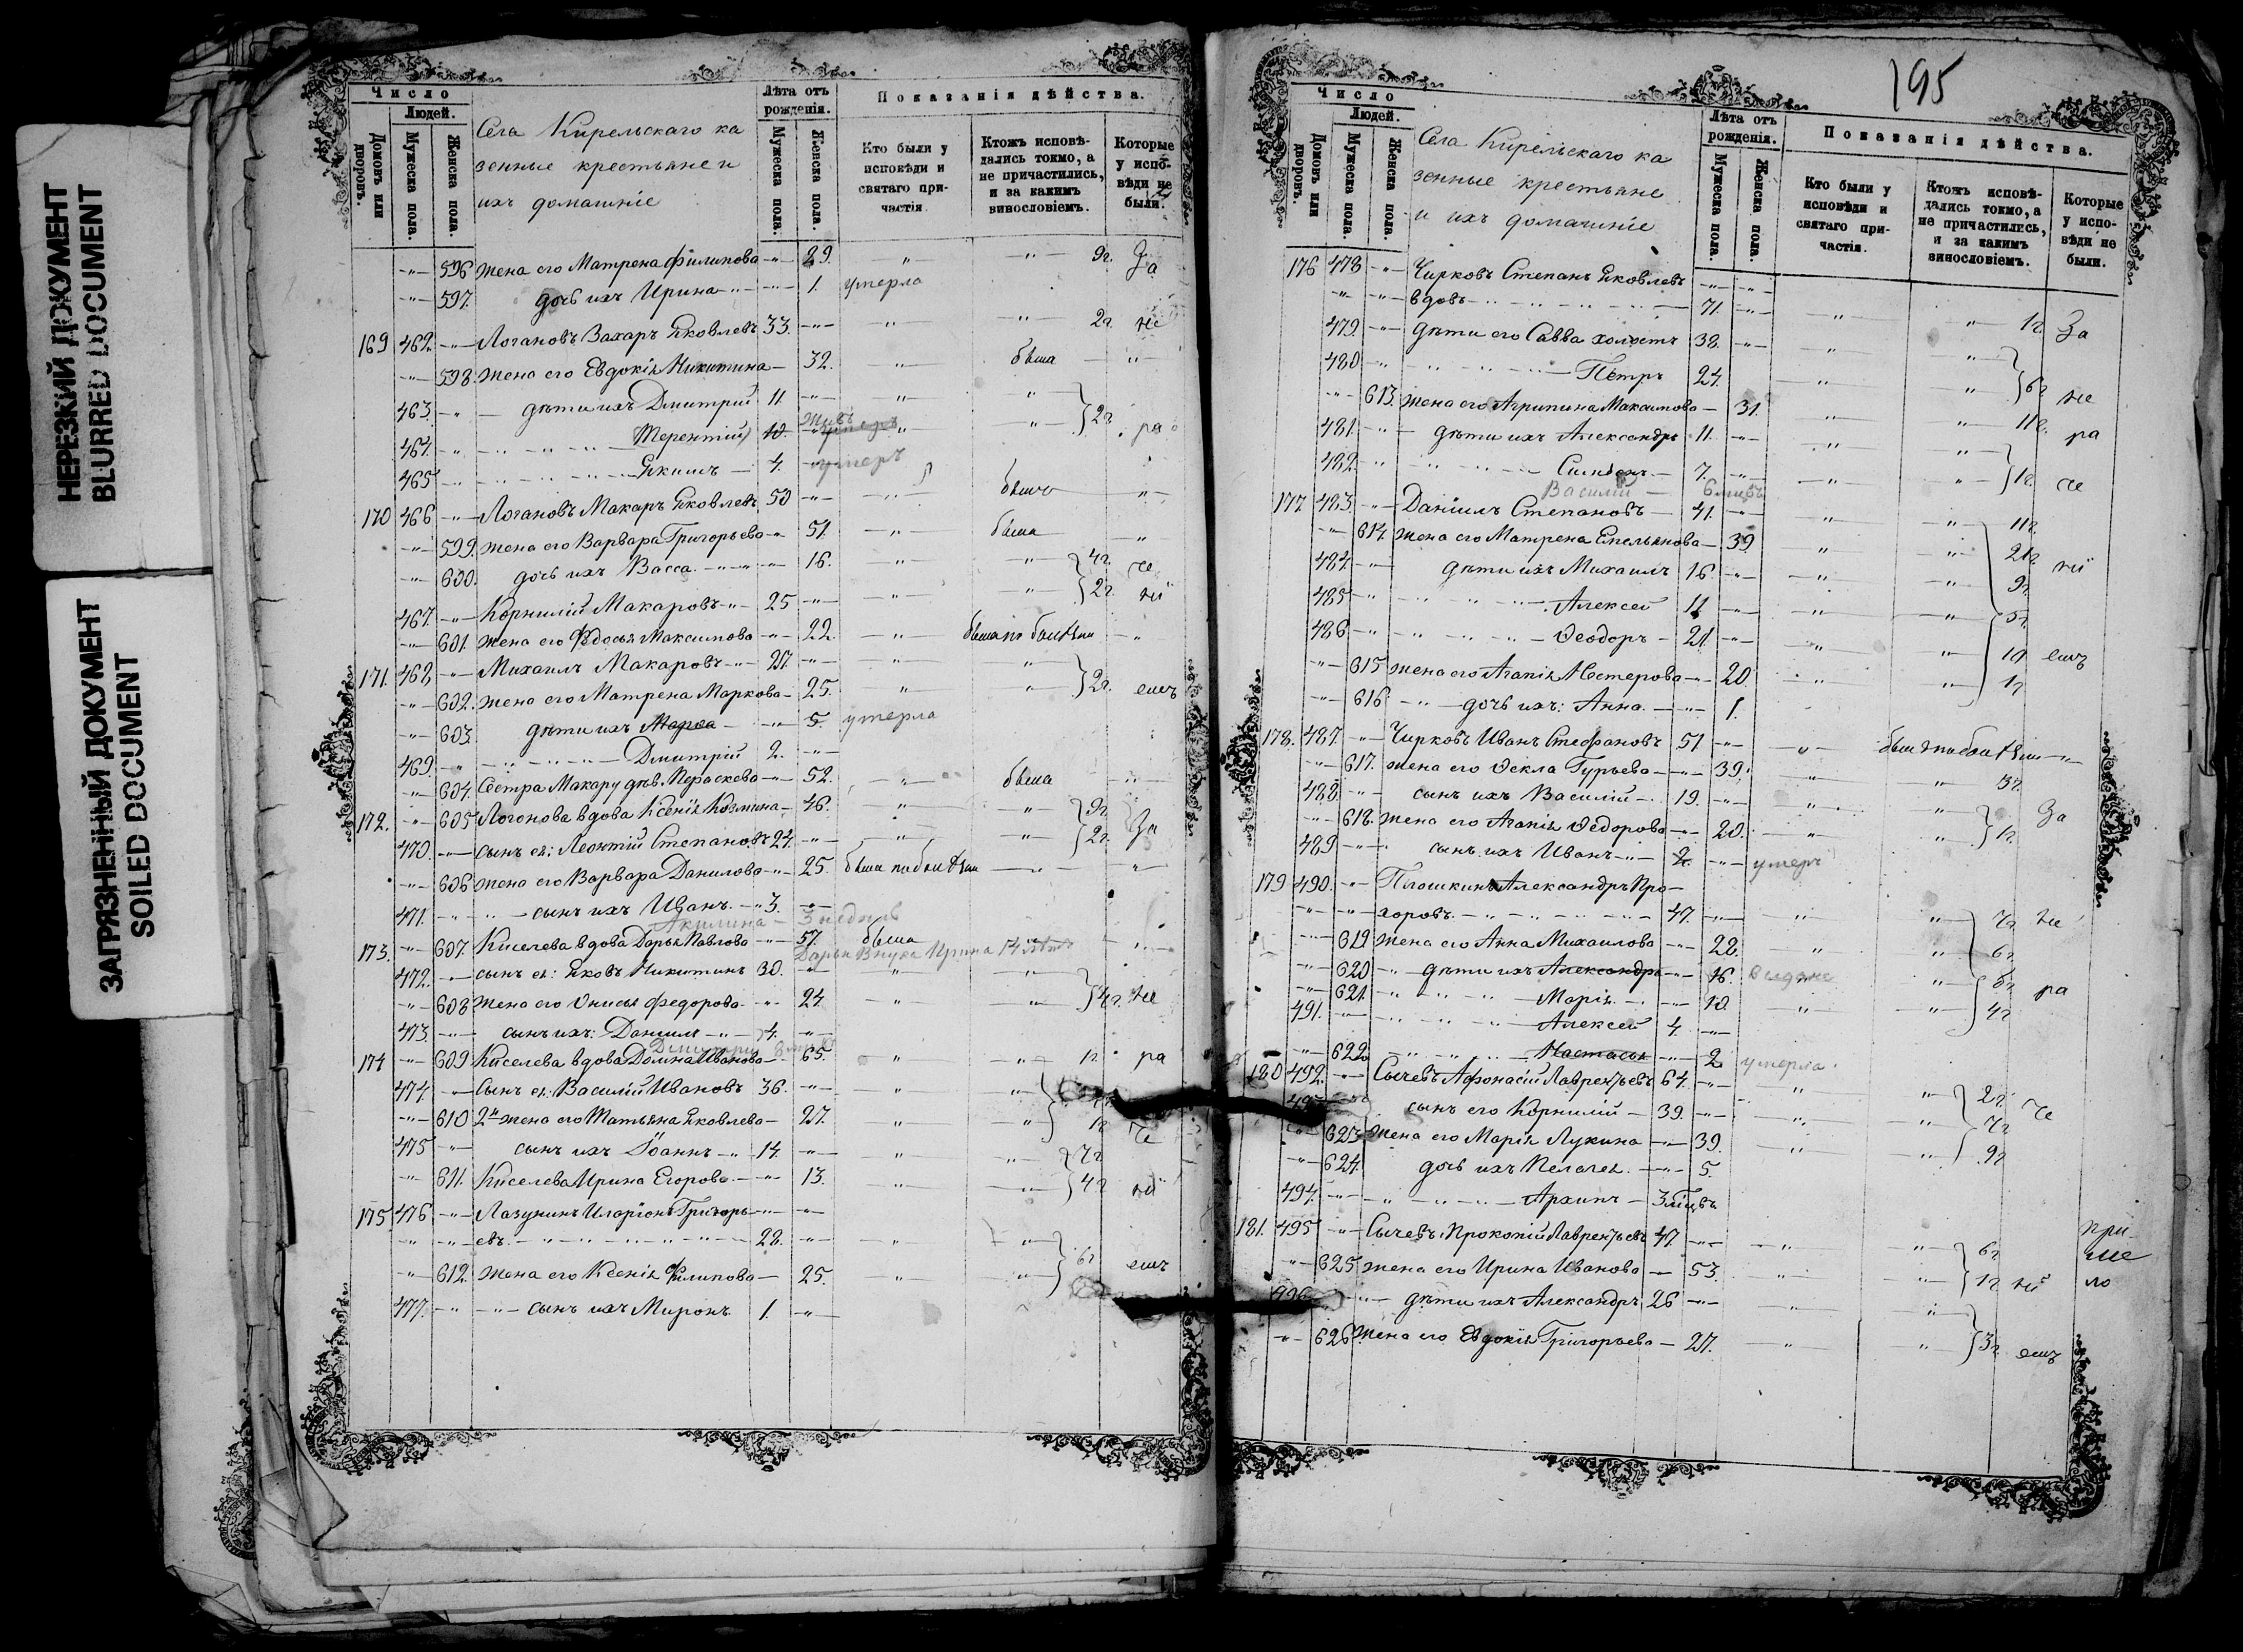 НЕРЕЗКИЙ ДОКУМЕНТ
BLURRED DOCUMENT
ЗАГРЯЗНЕННЫЙ ДОКУМЕНТ
SOILED DOCUMENT
Число
Людей.
Домовъ или дворовъ.
Мужеска пола.
Женска пола.
Села Кирельскаго ка
зенные крестьяне и
ихъ домашніе
Лѣта отъ рожденія.
Мужеска пола.
Женска пола.
Показанія дѣйства.
Кто были у исповѣди и святаго причастія.
Ктожъ исповѣдались токмо, а не причастились, и за какимъ винословіемъ.
Которые у исповѣди не были.
596 жена его Матрена Филипова 29. 9г. За
597. дочь ихъ Ирина 1. умерла
169 462. Логановъ Захаръ Яковлевъ 33. 2г. не
598. жена его Евдокія Никитина 32. бѣша
463. дѣти ихъ Дмитрий 11. 2г. ра
464. Терентій 10. живъ умеръ
465 Якимъ 4. умеръ
170 466 Логановъ Макаръ Яковлевъ 50
599. жена его Варвара Григорьева 51. бѣша
600. дочь ихъ Васса 16. 4г. че
467. Корнилій Макаровъ 25 2г. ній
601. жена его Ѳедосья Максимова 22.
171. 468 Михаилъ Макаровъ 27.
602. жена его Матрена Маркова 25. 2г. емъ
603. дѣти ихъ 5. умерла
469. Дмитрій 2.
604. Сестра Макару дѣв. Пераскева 52. бѣша
172. 605. Логонова вдова Ксенія Козмина 46. 9г.
470. сынъ ея: Леонтій Степановъ 24. 2г. За
606 жена его Варвара Данилова 25.
471. сынъ ихъ Иванъ 3.
Акилина 3 недѣль
173. 607. Киселева вдова Дарья Павлова 57. бѣша
Дарьи внука Ирина 14 лѣтъ
472. сынъ ея: Яковъ Никитинъ 30.
608 жена его Онисья Федорова 24. 4г. не
473. сынъ ихъ: Даниилъ 4.
Дмитрій
174 609 Киселева вдова Домна Иванова 65. 1г. ра
474. Сынъ ея: Василій Ивановъ 36.
610 2я жена его Татьяна Яковлева 27. 1г. че
475 сынъ ихъ Іоаннъ 14. 7г.
611. Киселева Ирина Егорова 13. 4г. ній
175 476 Лазунинъ Иларіонъ Григорь-
евъ 28.
612. жена его Ксенія Филипова 25. 6г. емъ
477. сынъ ихъ Миронъ 1.
195
Число
Людей.
Домовъ или дворовъ.
Мужеска пола.
Женска пола.
Села Кирельскаго ка
зенные крестьяне
и ихъ домашніе
Лѣта отъ рожденія.
Мужеска пола.
Женска пола.
Показанія дѣйства.
Кто были у исповѣди и святаго причастія.
Ктожъ исповѣдались токмо, а не причастились, и за какимъ винословіемъ.
Которые у исповѣди не были.
176 478 Чирковъ Степанъ Яковлевъ
вдовъ 71. 1г. За
479. дѣти его Савва холостъ 38.
480 Петръ 24. 6г. не
613. жена его Агрипина Максимова 31. 11г.
481. дѣти ихъ Александръ 11. ра
482. Симеонъ 7. 1г. че
Василій
177 483. Даніилъ Степановъ 41. 11г.
614. жена его Матрена Емельянова 39 21г. ній
484. дѣти ихъ Михаилъ 16. 9г.
485 Алексей 11 5г.
486 Ѳеодоръ 21. 1г. емъ
615 жена его Агапія Нестерова 20. 1г.
616 дочь ихъ: Анна 1.
178. 487. Чирковъ Иванъ Стефановъ 51
617. жена его Ѳекла Гурьева 39. 3г.
488 сынъ ихъ Василій 19. За
618. жена его Агапія Ѳедорова 20. 1г.
489 сынъ ихъ Иванъ 2. умеръ
179 490. Плошкинъ Александръ Про-
хоровъ 47. 7г. не
619 жена его Анна Михаилова 28. 6г.
620 дѣти ихъ Александра 16. 5г. ра
621. Марія 10. 4г.
491. Алексей 4.
622 Настасья 2 умерла
180 492. Сычевъ Афонасій Лаврентьевъ 64. 2г.
493 сынъ его Корнилій 39. 7г. че
623 жена его Марія Лукина 39. 9г.
624. дочь ихъ Пелагея 5.
494. Архипъ 3 мѣцвъ
181. 495 Сычевъ Прокопій Лаврентьевъ 47. 6г.
625 жена его Ирина Иванова 53. 1г. ній
496 дѣти ихъ Александръ 26
626 жена его Евдокія Григорьева 27. 3г. емъ
при-
ше
ло